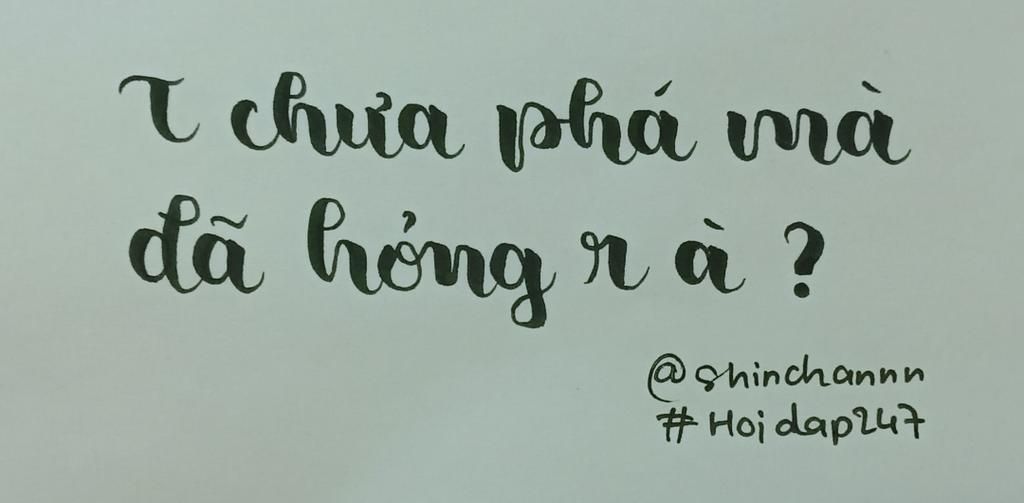 T chưa phá mà
đã hỏng r à?
@shinchannn
#Hoidap247